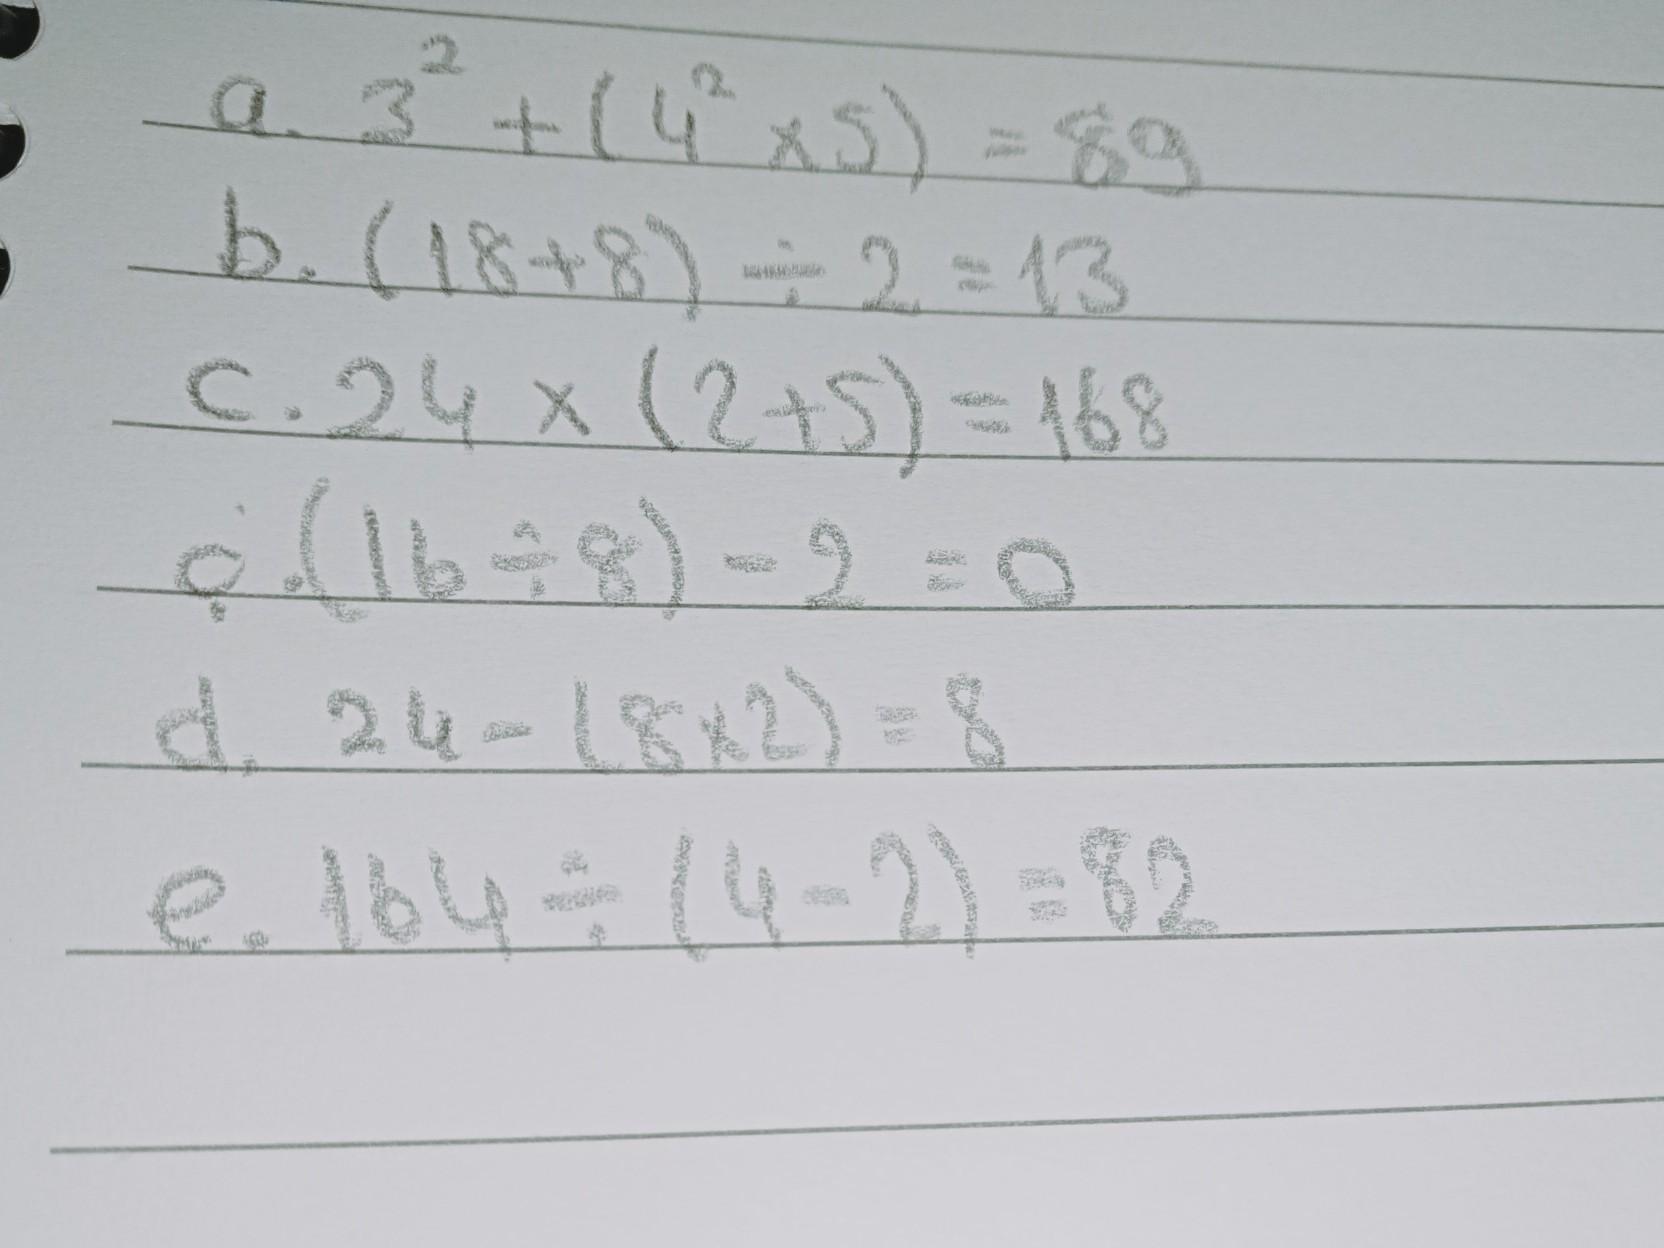 a. 3² + (4² × 5) = 89
b. (18 + 8) ÷ 2 = 13
c. 24 × (2 + 5) = 168
ċ. (16 ÷ 8) - 2 = 0
d. 24 - (8 × 2) = 8
e. 164 ÷ (4 - 2) = 82